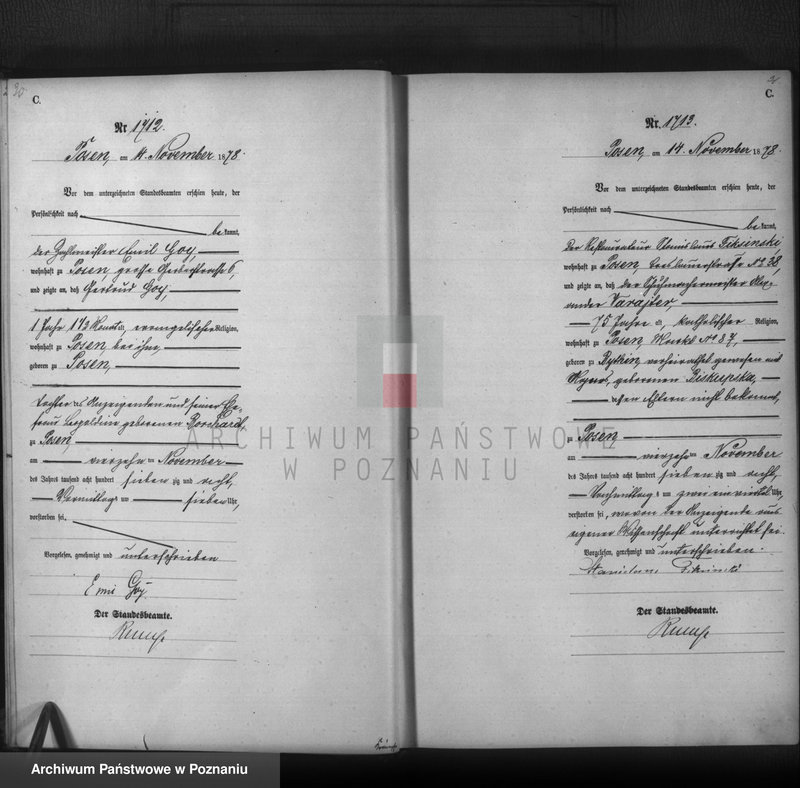 20
C.
Nr. 1712.
Posen, am 14. November 1878.
Vor dem unterzeichneten Standesbeamten erschien heute, der
Persönlichkeit nach
bekannt,
der Zahlmeister Emil Goy,
wohnhaft zu Posen, grosse 6,
und zeigte an, daß Gertrud Goy,
1 Jahr alt, evangelischer Religion,
wohnhaft zu Posen, bei ihm
geboren zu Posen,
Tochter des Anzeigenden und seiner Ehe-
frau Leopoldine geborenen
zu Posen
am vierzehnten November
des Jahres tausend acht hundert siebenzig und acht,
Vormittags um sieben Uhr,
verstorben sei.
Vorgelesen, genehmigt und unterschrieben
Emil Goy.
Der Standesbeamte.
C.
Nr. 1713.
Posen, am 14. November 1878.
Vor dem unterzeichneten Standesbeamten erschien heute, der
Persönlichkeit nach
bekannt,
der Restaurateur Stanislaus
wohnhaft zu Posen, Breslauerstraße No 38,
und zeigte an, daß der Schuhmachermeister Alex-
ander
75 Jahre alt, katholischer Religion,
wohnhaft zu Posen, Markt No 87,
geboren zu verheirathet gewesen mit
Agnes, geborenen Biskupska,
deren Eltern nicht bekannt,
zu Posen
am vierzehnten November
des Jahres tausend acht hundert siebenzig und acht,
Nachmittags um zwei ein viertel Uhr,
verstorben sei, wovon der Anzeigende aus
eigener Wissenschaft unterrichtet sei.
Vorgelesen, genehmigt und unterschrieben.
Stanislaus
Der Standesbeamte.
ARCHIWUM PAŃSTWOWE
W POZNANIU
Archiwum Państwowe w Poznaniu